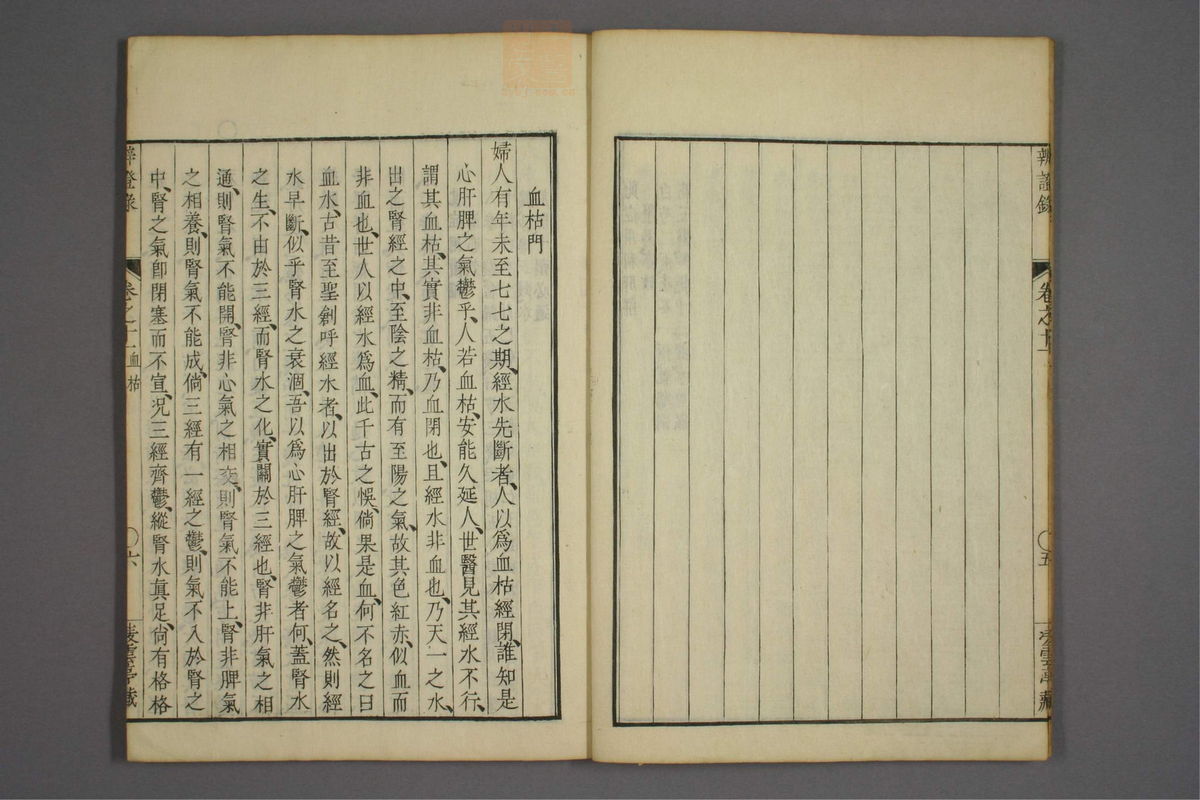 辨證錄
卷之十一
五
凌雲亭藏
血枯門
婦人有年未至七七之期、經水先斷者、人以爲血枯經閉、誰知是
心肝脾之氣鬱乎、人若血枯、安能久延人、世醫見其經水不行、
謂其血枯、其實非血枯、乃血閉也、且經水非血也、乃天一之水、
出之腎經之中、至陰之精、而有至陽之氣、故其色紅赤、似血而
非血也、世人以經水爲血、此千古之悞、倘果是血、何不名之曰
血水、古昔至聖創呼經水者、以出於腎經、故以經名之、然則經
水早斷、似乎腎水之衰涸、吾以爲心肝脾之氣鬱者何、蓋腎水
之生、不由於三經、而腎水之化、實關於三經也、腎非肝氣之相
通、則腎氣不能開、腎非心氣之相交、則腎氣不能上、腎非脾氣
之相養、則腎氣不能成、倘三經有一經之鬱、則氣不入於腎之
中、腎之氣卽閉塞而不宣、况三經齊鬱、縱腎水眞足、尙有格格
辨證錄
卷之十一
血枯
六
凌雲亭藏